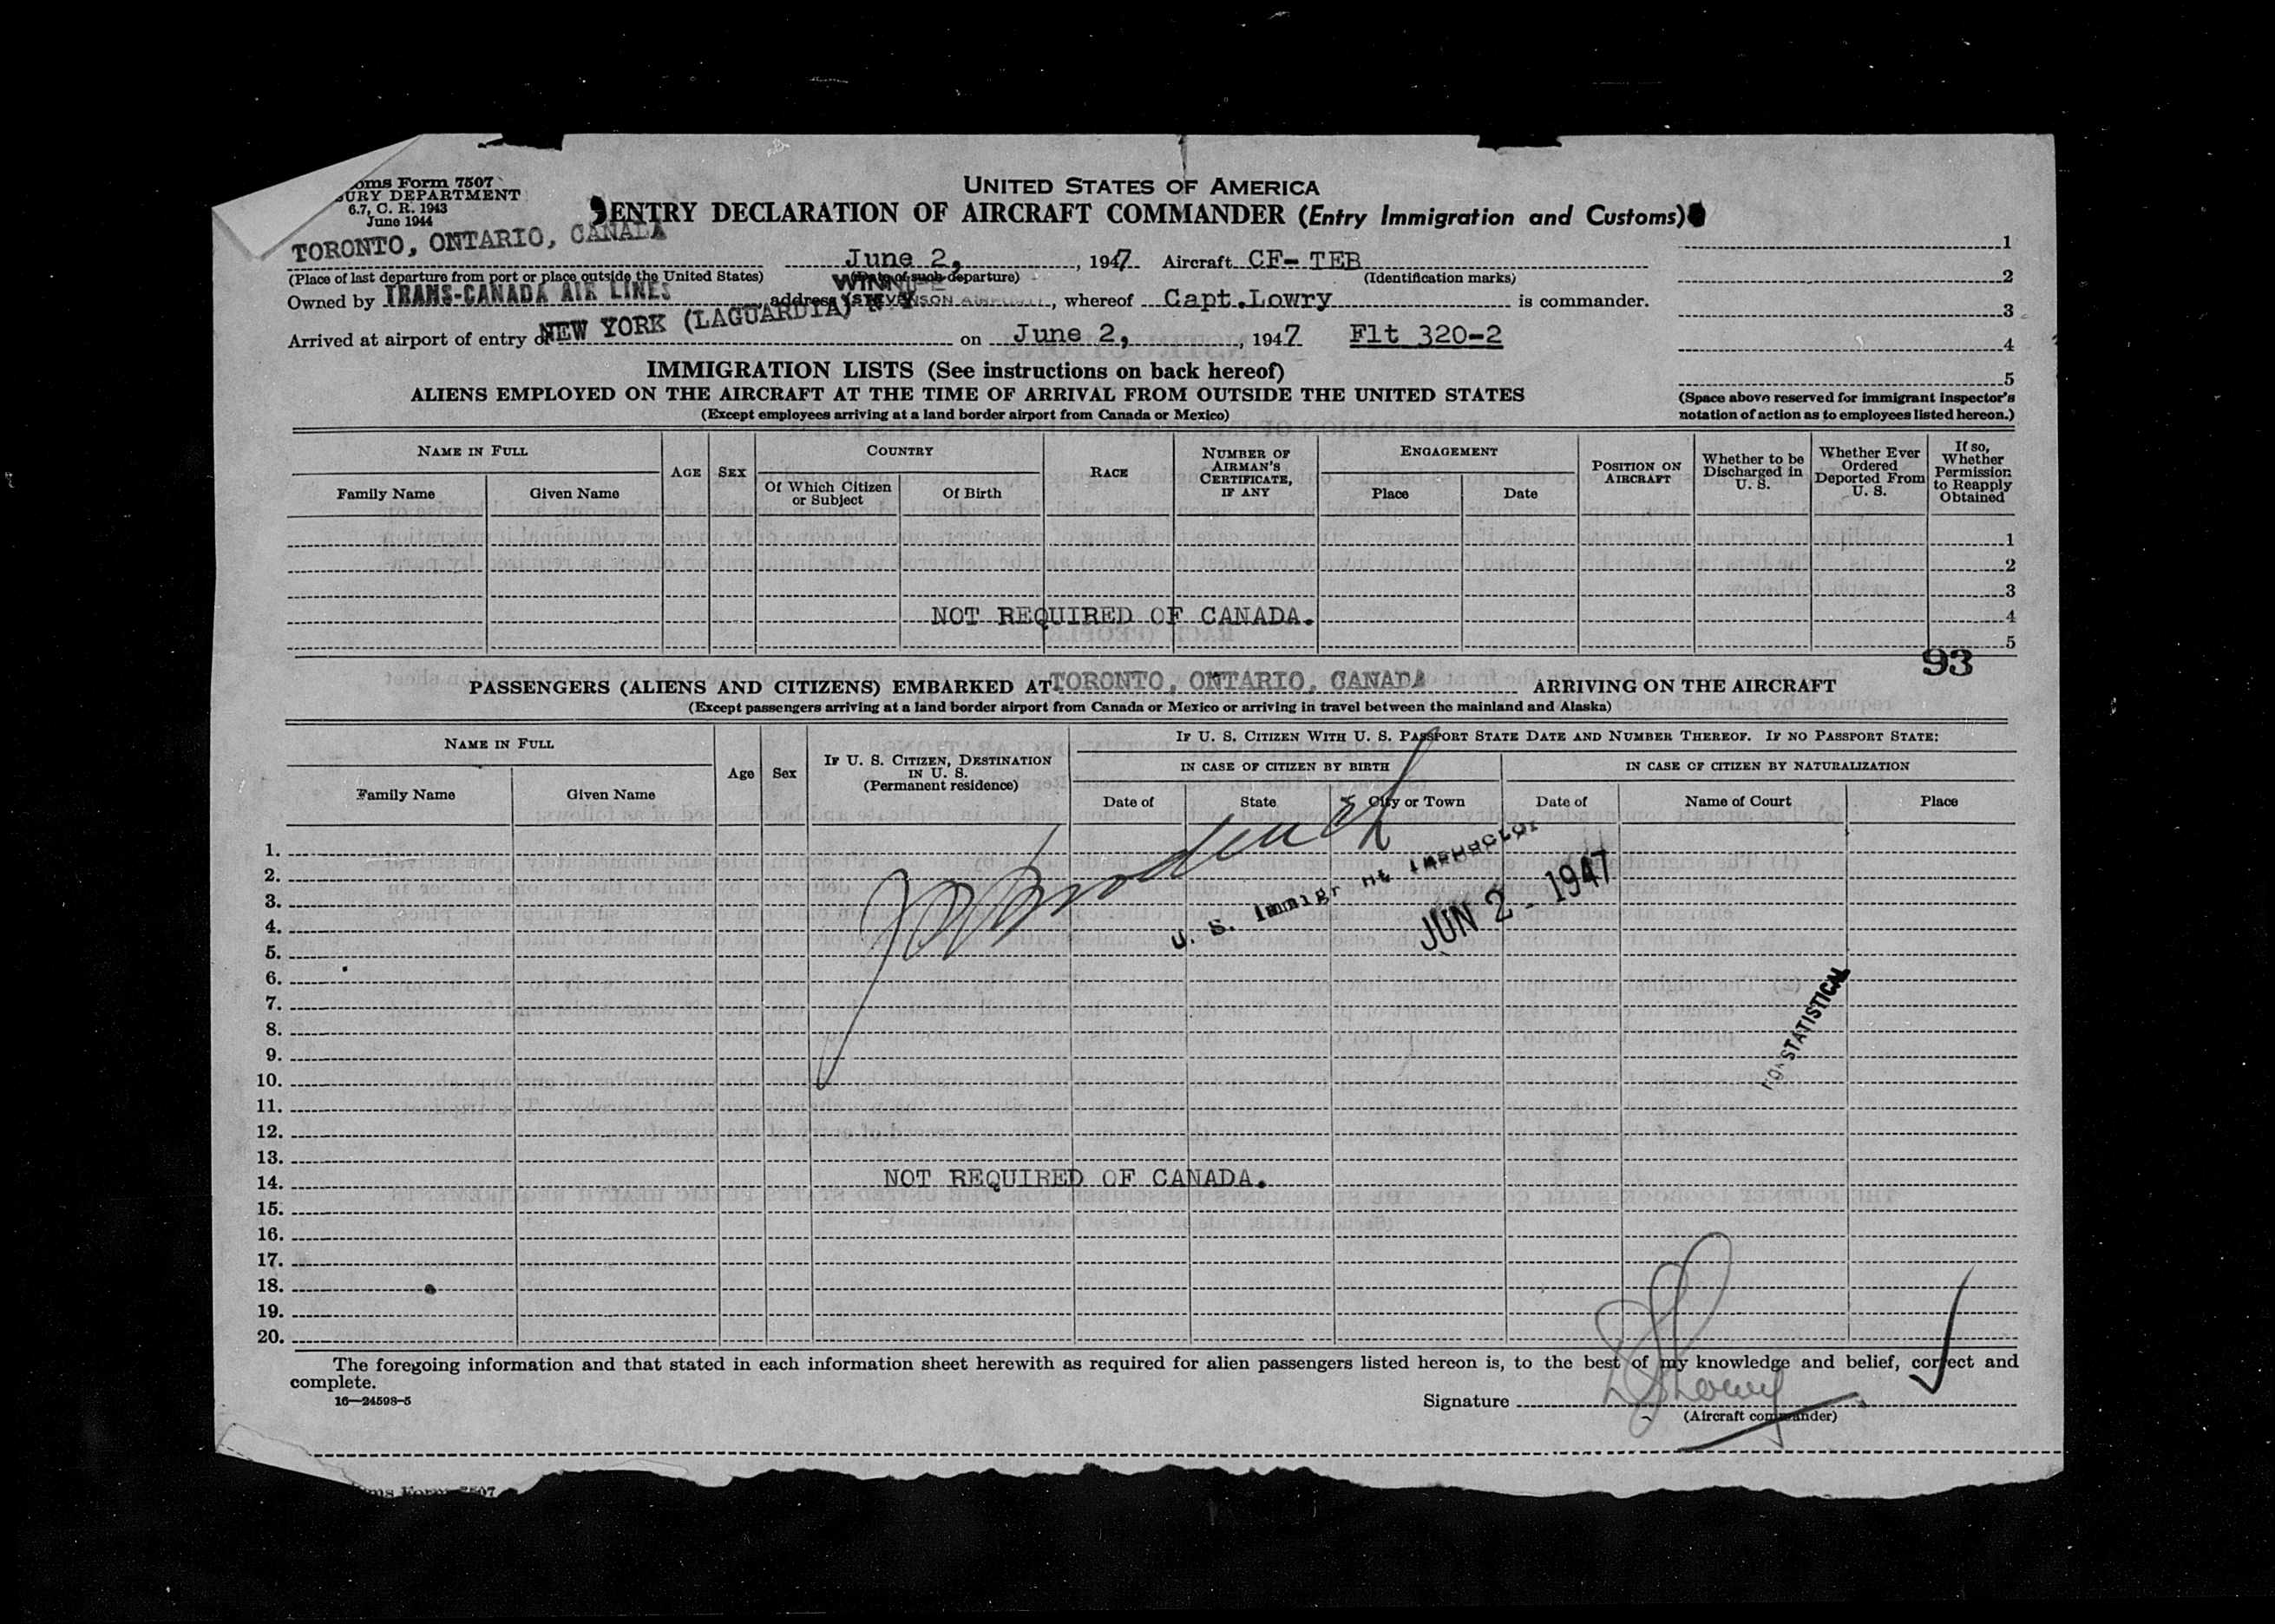 oms Form 7507
URY DEPARTMENT
6.7, C. R. 1943
June 1944
UNITED STATES OF AMERICA
ENTRY DECLARATION OF AIRCRAFT COMMANDER (Entry Immigration and Customs)
TORONTO, ONTARIO, CANADA
June 2, , 1947 Aircraft CF- TEB
(Place of last departure from port or place outside the United States) (Date of such departure) (Identification marks)
Owned by TRANS-CANADA AIR LINES, address STEVENSON, whereof Capt. Lowry is commander.
Arrived at airport of entry of NEW YORK (LAGUARDIA) N Y on June 2, , 1947 Flt 320-2
1
2
3
4
5
(Space above reserved for immigrant inspector's
notation of action as to employees listed hereon.)
IMMIGRATION LISTS (See instructions on back hereof)
ALIENS EMPLOYED ON THE AIRCRAFT AT THE TIME OF ARRIVAL FROM OUTSIDE THE UNITED STATES
(Except employees arriving at a land border airport from Canada or Mexico)
NAME IN FULL
Family Name
Given Name
AGE
SEX
COUNTRY
Of Which Citizen
or Subject
Of Birth
RACE
NUMBER OF
AIRMAN'S
CERTIFICATE,
IF ANY
ENGAGEMENT
Place
Date
POSITION ON
AIRCRAFT
Whether to be
Discharged in
U. S.
Whether Ever
Ordered
Deported From
U. S.
If so,
Whether
Permission
to Reapply
Obtained
1
2
3
NOT REQUIRED OF CANADA. 4
5
93
PASSENGERS (ALIENS AND CITIZENS) EMBARKED AT TORONTO, ONTARIO, CANADA ARRIVING ON THE AIRCRAFT
(Except passengers arriving at a land border airport from Canada or Mexico or arriving in travel between the mainland and Alaska)
NAME IN FULL
Family Name
Given Name
Age
Sex
IF U. S. CITIZEN, DESTINATION
IN U. S.
(Permanent residence)
IF U. S. CITIZEN WITH U. S. PASSPORT STATE DATE AND NUMBER THEREOF. IF NO PASSPORT STATE:
IN CASE OF CITIZEN BY BIRTH
Date of
State
City or Town
IN CASE OF CITIZEN BY NATURALIZATION
Date of
Name of Court
Place
1.
2.
3.
4.
5.
U. S. Immigr nt Inspector
JUN 2 - 1947
6.
7.
8.
STATISTICAL
9.
10.
11.
12.
13.
14. NOT REQUIRED OF CANADA.
15.
16.
17.
18.
19.
20.
The foregoing information and that stated in each information sheet herewith as required for alien passengers listed hereon is, to the best of my knowledge and belief, correct and
complete.
16—24598-5
Signature
(Aircraft commander)